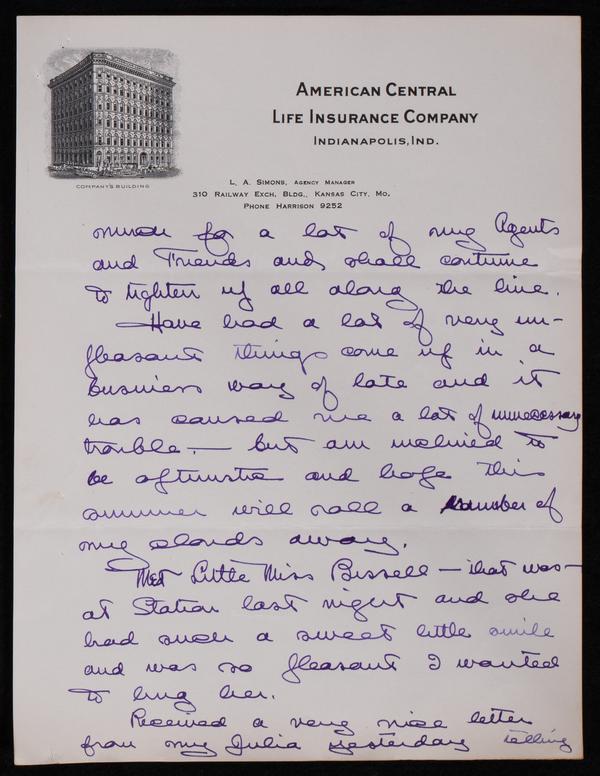 AMERICAN CENTRAL
LIFE INSURANCE COMPANY
INDIANAPOLIS, IND.
COMPANY'S BUILDING
L. A. SIMONS, AGENCY MANAGER
310 RAILWAY EXCH. BLDG., KANSAS CITY, MO.
PHONE HARRISON 9252
much for a lot of my Agents
and Friends and shall continue
to tighten up all along the line.
Have had a lot of very un-
pleasant things come up in a
business way of late and it
has caused me a lot of unnecessary
trouble — but am inclined to
be optimistic and hope this
summer will roll a number of
my clouds away.
Met Little Miss Bissell — that was —
at Station last night and she
had such a sweet little smile
and was so pleasant I wanted
to hug her.
Received a very nice letter
from my Julia yesterday telling